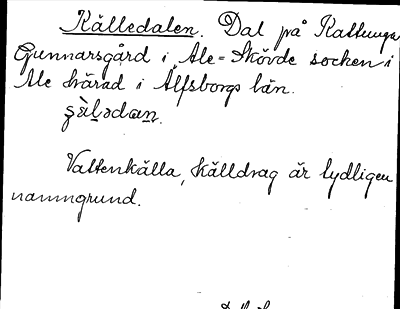 Källedalen. Dal på Kattunga
Gunnarsgård i Ale-Skövde socken i
Ale härad i Älfsborgs län.
Vattenkälla, källdrag är tydligen
namngrund.